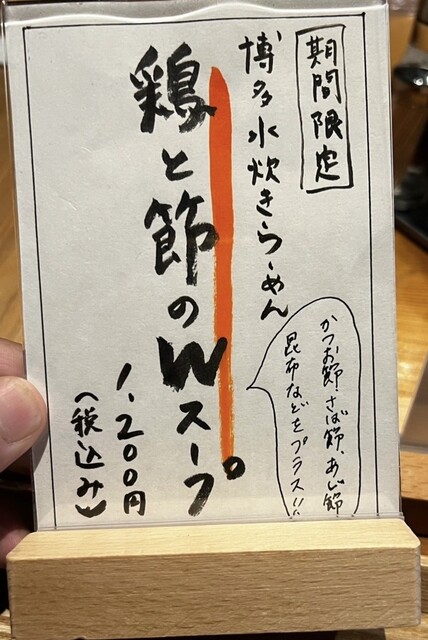 期間限定
博多水炊きらーめん
鶏と節のWスープ
かつお節、さば節、あじ節
昆布などをプラス!!
1,200円
(税込み)